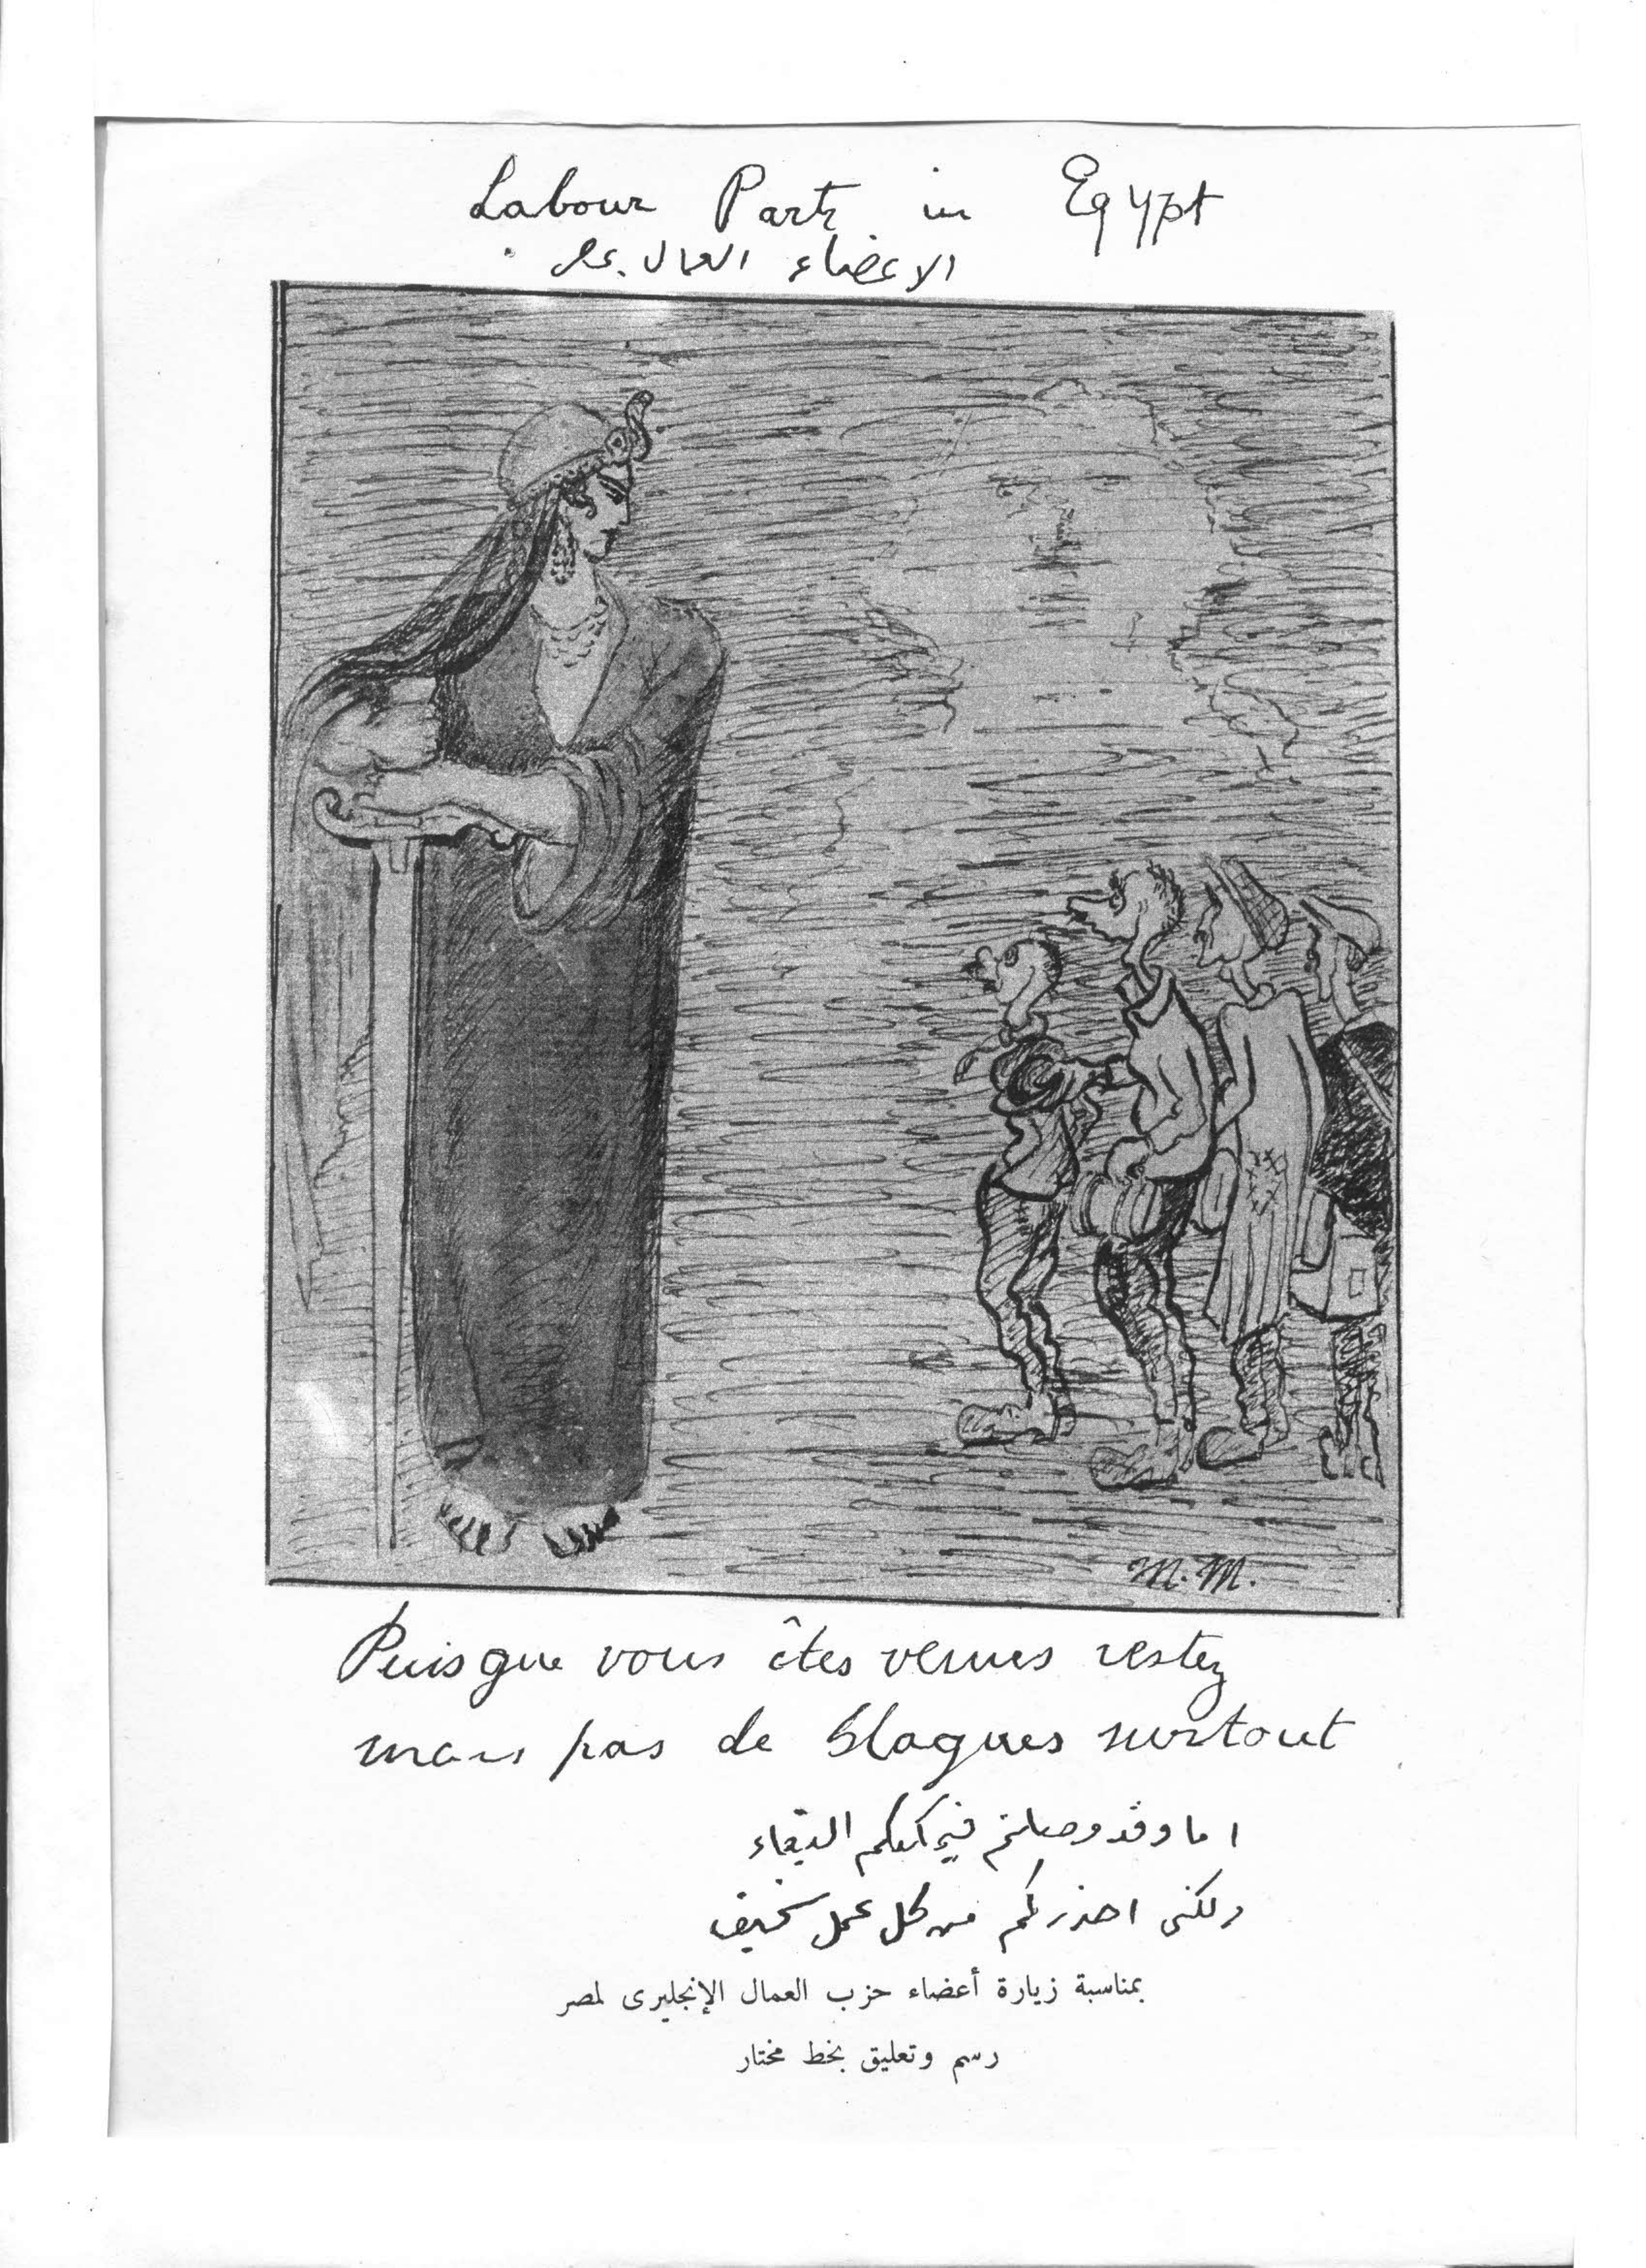 Labour Party in Egypt
الاعضاء العمال بمصر
M. M.
Puisque vous êtes venus restez
mais pas de blagues surtout
اما وقد وصلتم فيمكنكم البقاء
ولكنى احذركم من كل عمل سخيف
بمناسبة زيارة أعضاء حزب العمال الإنجليزى لمصر
رسم وتعليق بخط مختار